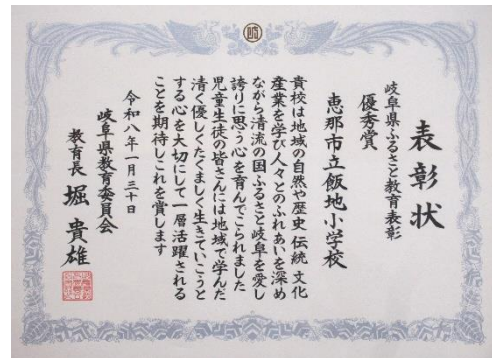 表彰状
岐阜県ふるさと教育表彰
優秀賞
恵那市立飯地小学校
貴校は地域の自然や歴史 伝統 文化
産業を学び人々とのふれあいを深め
ながら清流の国ふるさと岐阜を愛し
誇りに思う心を育んでこられました
児童生徒の皆さんには地域で学んだ
清く優しくたくましく生きていこうと
する心を大切にして一層活躍される
ことを期待しこれを賞します
令和八年一月三十日
岐阜県教育委員会
教育長 堀 貴雄